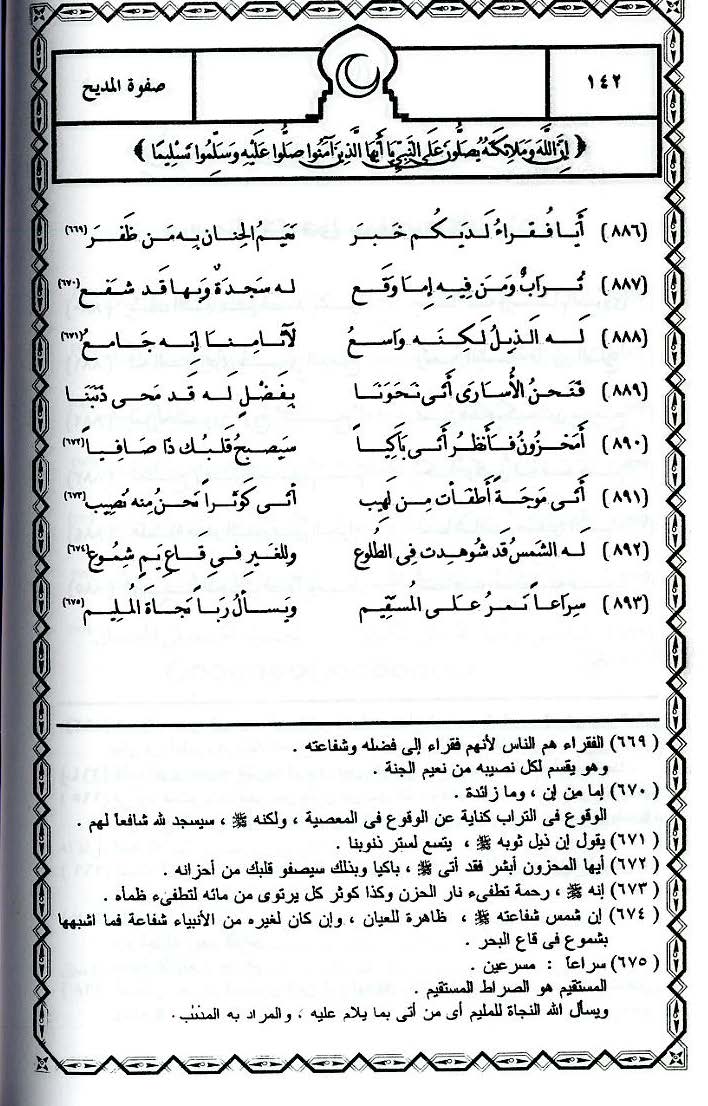 ١٤٢
صفوة المديح
﴿ إِنَّ اللَّهَ وَمَلَائِكَتَهُ يُصَلُّونَ عَلَى النَّبِيِّ يَا أَيُّهَا الَّذِينَ آمَنُوا صَلُّوا عَلَيْهِ وَسَلِّمُوا تَسْلِيمًا ﴾
(٨٨٦) أَيَا فُقَراءُ لَدَيكُم خَبَرَ نَعيمُ الجِنان بِه مَن ظَفَرَ (٦٦٩)
(٨٨٧) تُرابٌ ومَن فيهِ إما وَقَع له سَجدَةٌ وبها قد شَفَع (٦٧٠)
(٨٨٨) لَه الذَيلُ لكنَه وَاسعُ لآثامِنا إنه جَامعُ (٦٧١)
(٨٨٩) فَنَحنُ الأُسارَى أَتى نَحوَنَا بِفَضلٍ لَه قد مَحى ذَنبَنا
(٨٩٠) أَمَحزُونُ فَانظُر أَتى بَاكِياً سَيَصبحُ قَلبُك ذَا صَافِياً (٦٧٢)
(٨٩١) أَتى مَوجَةً أَطفَأت مِن لَهِيب أتى كَوثَراً نَحنُ مِنه نُصِيب (٦٧٣)
(٨٩٢) له الشَمسُ قد شُوهدت فِى الطُلوع وللغَيرِ فى قَاعِ يمٍ شمُوع (٦٧٤)
(٨٩٣) سِراعاً نَمرُ عَلى المُستَقِيم ويَسألُ رَبا نَجَاةَ المُلِيم (٦٧٥)
(٦٦٩) الفقراء هم الناس لأنهم فقراء إلى فضله وشفاعته .
وهو يقسم لكل نصيبه من نعيم الجنة .
(٦٧٠) إما من إن ، وما زائدة .
الوقوع فى التراب كناية عن الوقوع فى المعصية ، ولكنه ﷺ ، سيسجد لله شافعاً لهم .
(٦٧١) يقول إن ذيل ثوبه ﷺ ، يتسع لستر ذنوبنا .
(٦٧٢) أيها المحزون أبشر فقد أتى ﷺ ، باكيا وبذلك سيصفو قلبك من أحزانه .
(٦٧٣) إنه ﷺ ، رحمة تطفىء نار الحزن وكذا كوثر كل يرتوى من مائه لتطفىء ظمأه .
(٦٧٤) إن شمس شفاعته ﷺ ، ظاهرة للعيان ، وإن كان لغيره من الأنبياء شفاعة فما اشبهها
بشموع فى قاع البحر .
(٦٧٥) سراعاً : مسرعين .
المستقيم هو الصراط المستقيم .
ويسأل الله النجاة للمليم أى من أتى بما يلام عليه ، والمراد به المذنب .